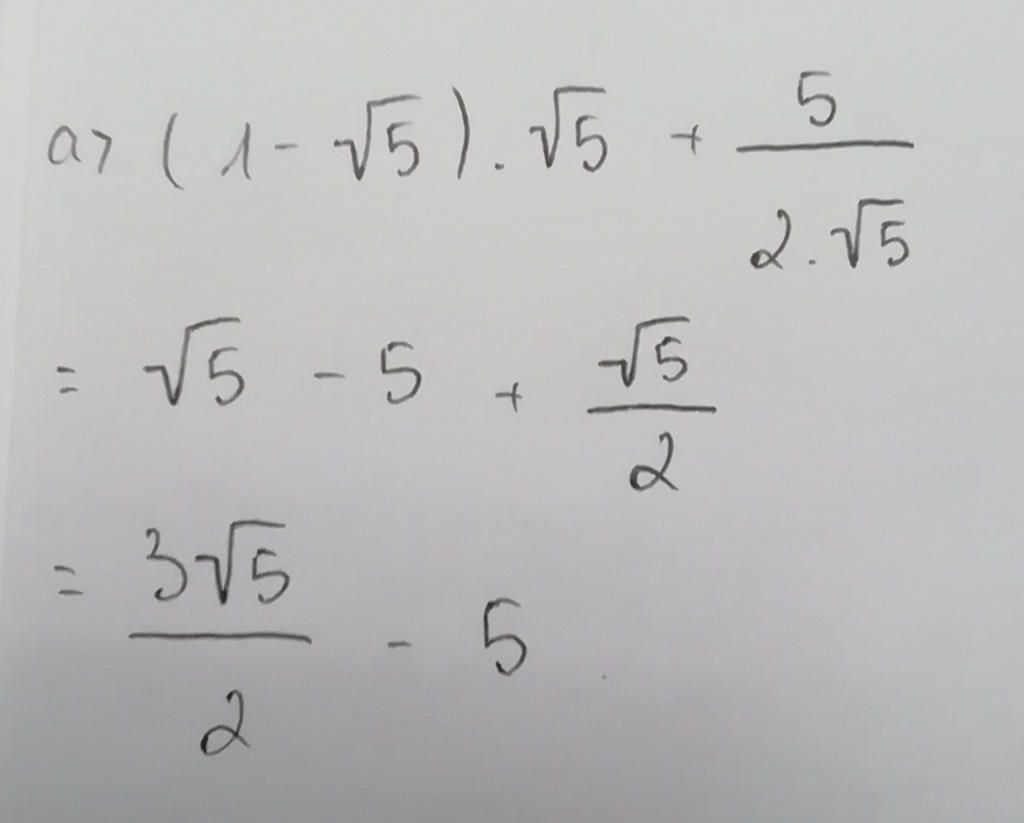 a> (1 - √5) . √5 + 5 / (2 . √5)
= √5 - 5 + √5 / 2
= 3√5 / 2 - 5